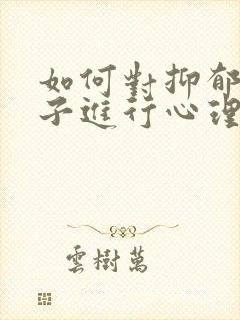 如何對抑郁
子進行心理
雲樹萬